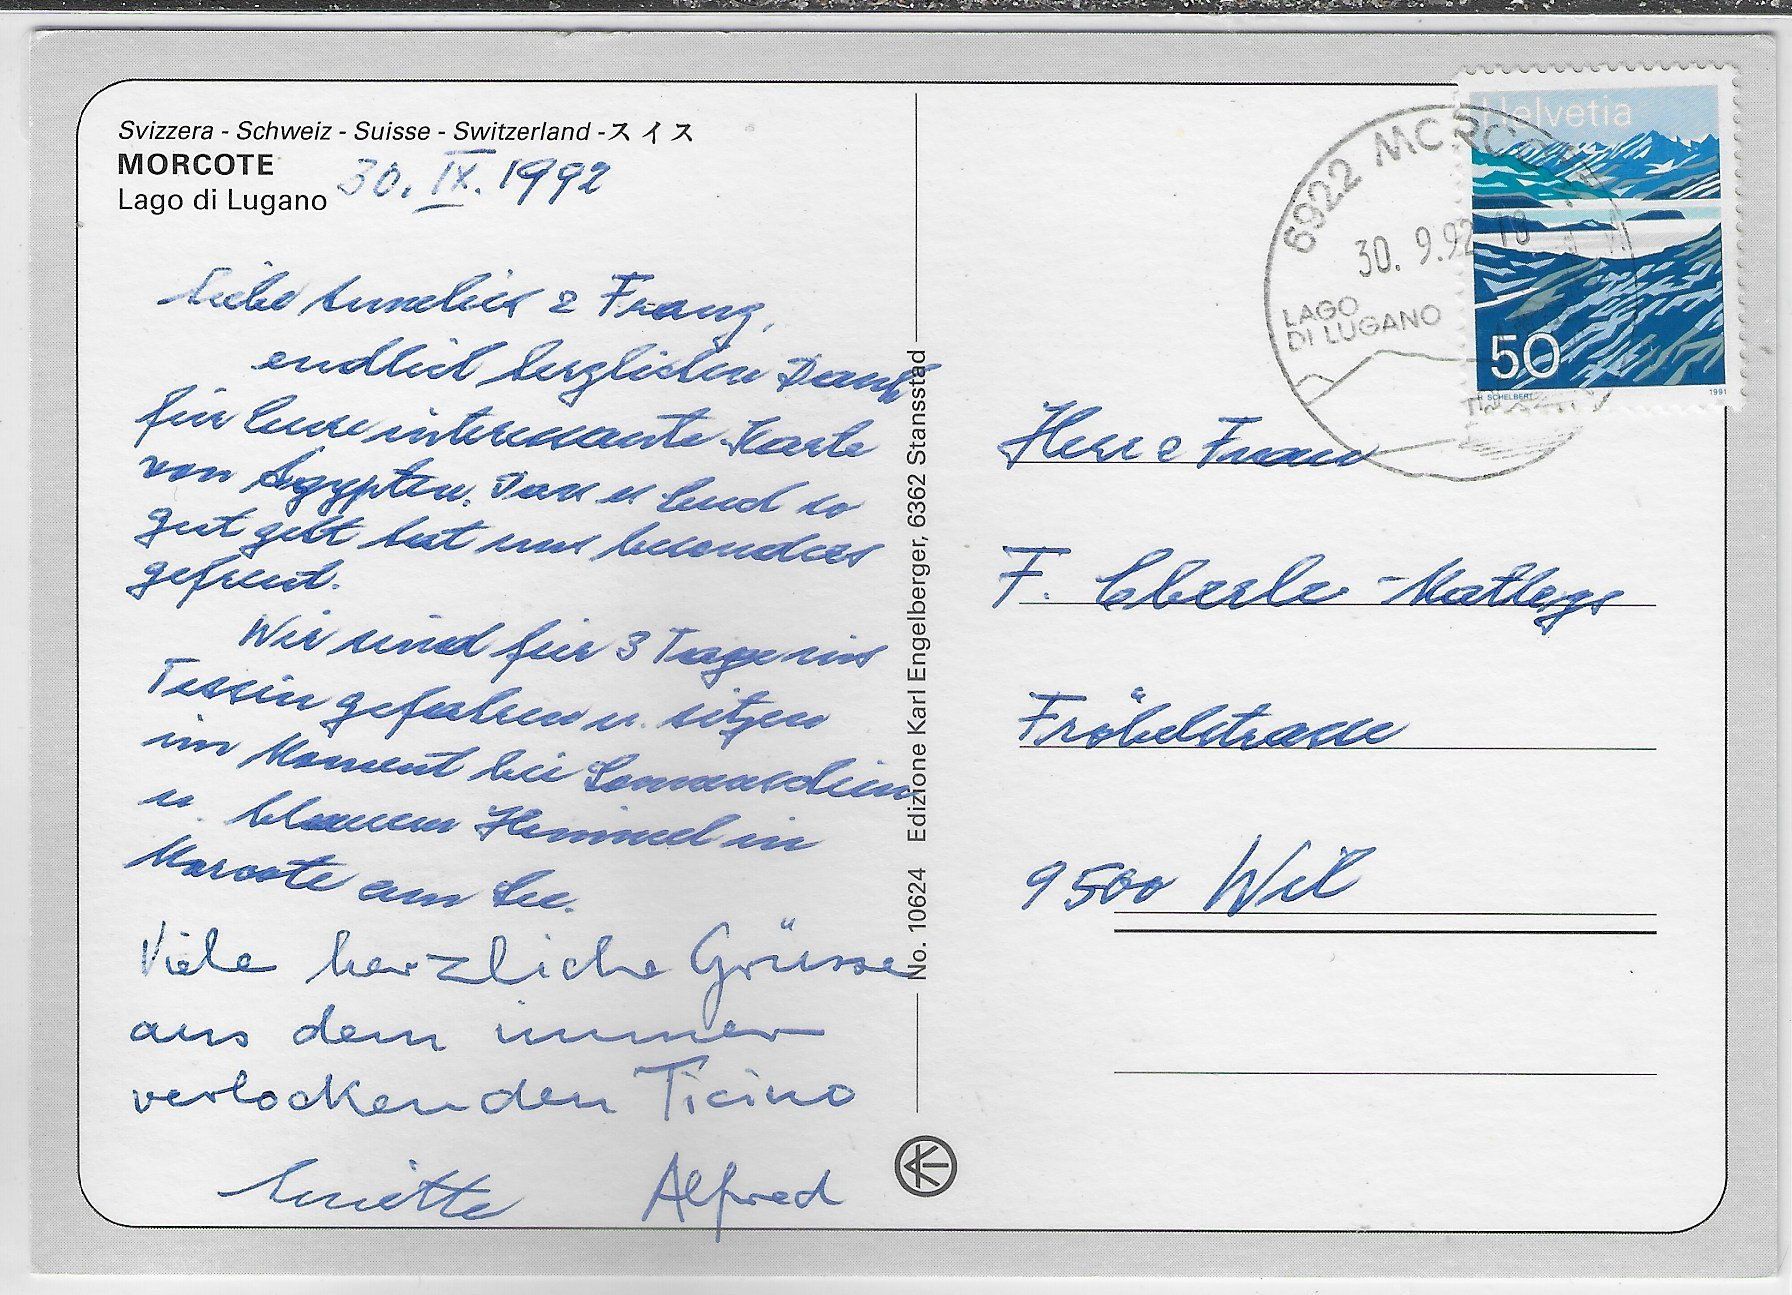 Svizzera - Schweiz - Suisse - Switzerland - スイス
MORCOTE
Lago di Lugano
30. IX. 1992
Liebe Annelies & Franz,
endlich herzlichen Dank
für Eure interessante Karte
von Ägypten. Dass es Euch so
gut geht hat uns besonders
gefreut.
Wir sind für 3 Tage ins
Tessin gefahren u. sitzen
im Moment bei Sonnenschein
u. blauem Himmel in
Morcote am See.
Viele herzliche Grüsse
aus dem immer
verlockenden Ticino
Alfred
No. 10624 Edizione Karl Engelberger, 6362 Stansstad
6922 MORCOTE
30. 9.92 18
LAGO
DI LUGANO
Helvetia
50
H. SCHELBERT 1991
Herr & Frau
F. Eberle-Matheys
Fröbelstrasse
9500 Wil